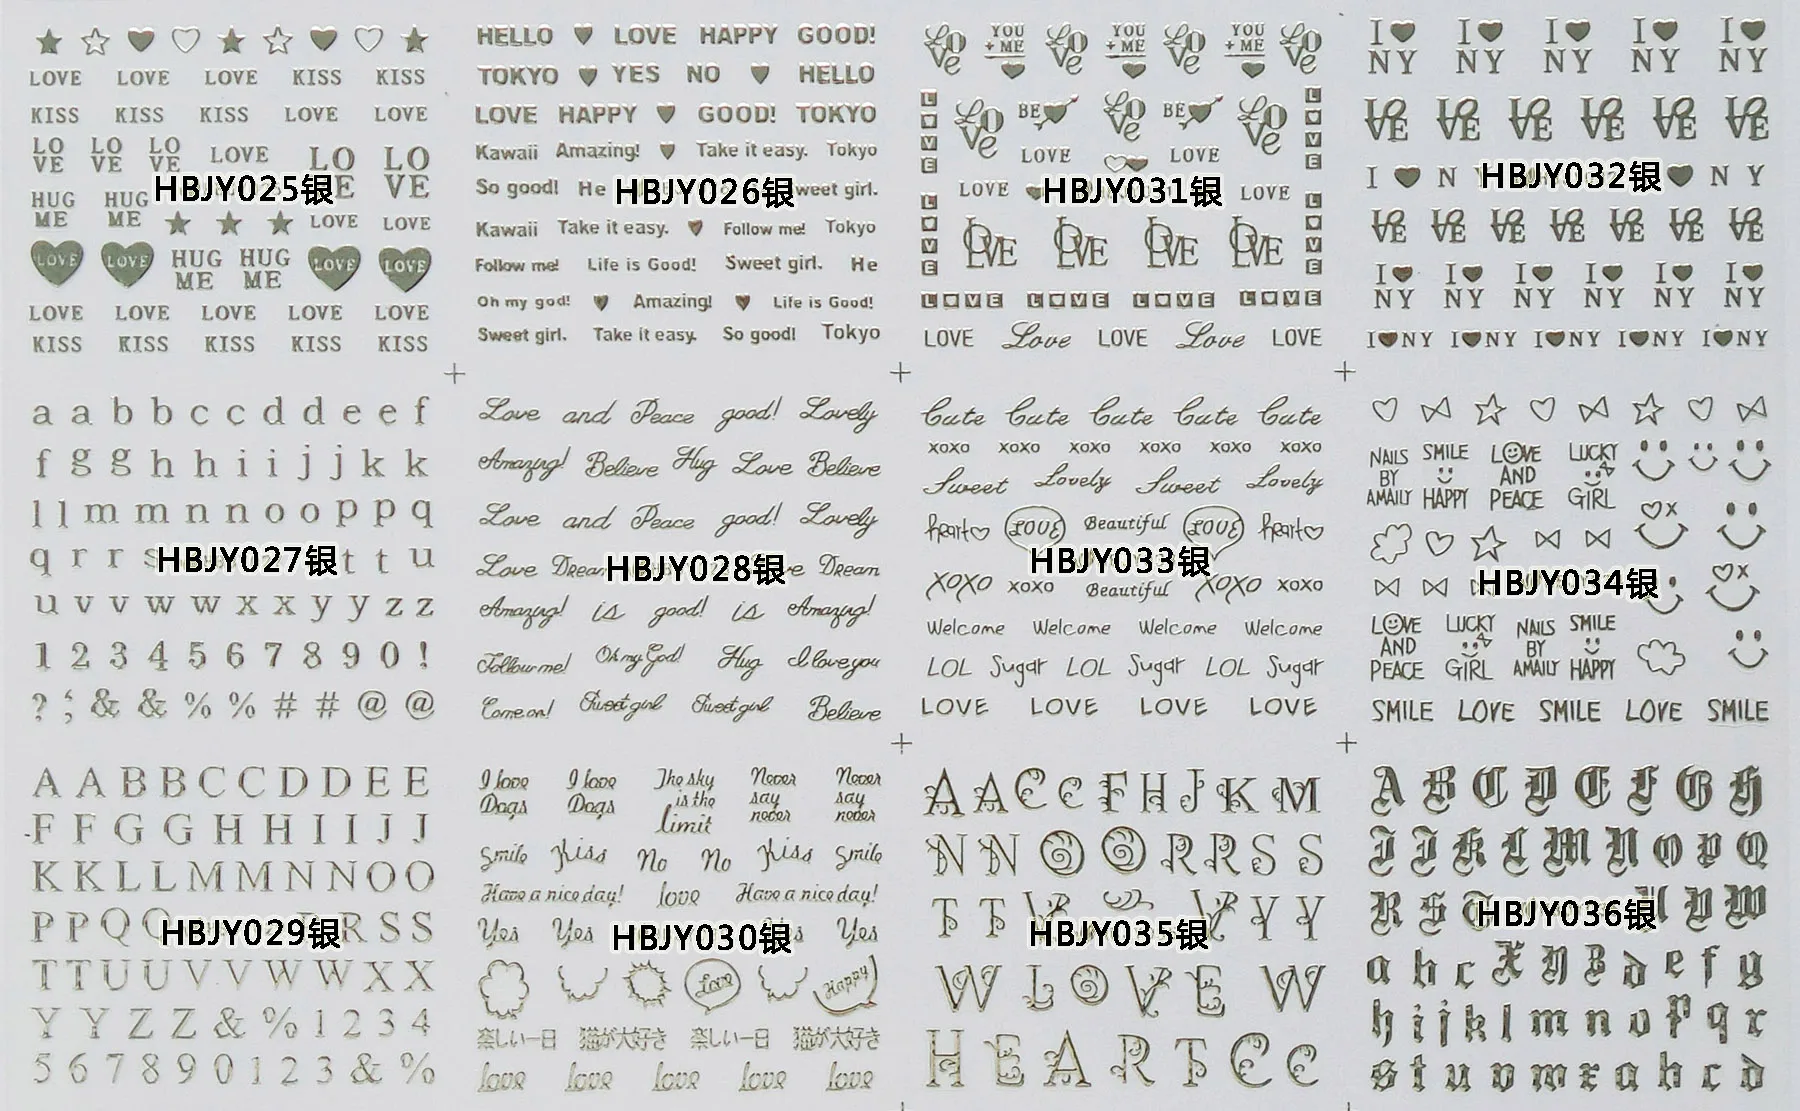 LOVE LOVE LOVE KISS KISS
KISS KISS KISS LOVE LOVE
LO LO LO LOVE LO LO
VE VE VE VE
HBJY025银
HUG HUG
ME ME LOVE LOVE
LOVE LOVE HUG HUG LOVE LOVE
ME ME
LOVE LOVE LOVE LOVE LOVE
KISS KISS KISS KISS KISS
HELLO LOVE HAPPY GOOD!
TOKYO YES NO HELLO
LOVE HAPPY GOOD! TOKYO
Kawaii Amazing! Take it easy. Tokyo
So good! He HBJY026银 weet girl.
Kawaii Take it easy. Follow me! Tokyo
Follow me! Life is Good! Sweet girl. He
Oh my god! Amazing! Life is Good!
Sweet girl. Take it easy. So good! Tokyo
LOVE YOU LOVE YOU LOVE YOU LOVE
+ ME + ME + ME
LOVE LOVE BE LOVE BE LOVE LOVE
LOVE LOVE
LOVE HBJY031银 LOVE
LOVE LOVE LOVE LOVE LOVE LOVE
LOVE LOVE LOVE LOVE
LOVE Love LOVE Love LOVE
I I I I I
NY NY NY NY NY
LOVE LOVE LOVE LOVE LOVE
I N HBJY032银 N Y
LOVE LOVE LOVE LOVE LOVE LOVE LOVE
I I I I I I
NY NY NY NY NY NY
I NY I NY I NY I NY I NY
a a b b c c d d e e f
f g g h h i i j j k k
l l m m n n o o p p q
q r r s HBJY027银 t t u
u v v w w x x y y z z
1 2 3 4 5 6 7 8 9 0 !
? ; & & % % # # @ @
Love and Peace good! Lovely
Amazing! Believe Hug Love Believe
Love and Peace good! Lovely
Love Drea HBJY028银 ve Dream
Amazing! is good! is Amazing!
Follow me! Oh my God! Hug I love you
Come on! Sweet girl Sweet girl Believe
Cute Cute Cute Cute Cute
xoxo xoxo xoxo xoxo xoxo xoxo
Sweet Lovely Sweet Lovely
heart LOVE Beautiful LOVE heart
HBJY033银
XOXO xoxo Beautiful XOXO xoxo
Welcome Welcome Welcome Welcome
LOL Sugar LOL Sugar LOL Sugar
LOVE LOVE LOVE LOVE
NAILS SMILE LOVE LUCKY
BY AND
AMAILY HAPPY PEACE GIRL
x
HBJY034银
x
LOVE LUCKY NAILS SMILE
AND BY
PEACE GIRL AMAILY HAPPY
SMILE LOVE SMILE LOVE SMILE
A A B B C C D D E E
F F G G H H I I J J
K K L L M M N N O O
P P Q Q HBJY029银 R S S
T T U U V V W W X X
Y Y Z Z & % 1 2 3 4
5 6 7 8 9 0 1 2 3 & %
I love I love The sky Never Never
Dogs Dogs is the say say
limit never never
Smile Kiss No No Kiss Smile
Have a nice day! love Have a nice day!
Yes Yes HBJY030银 Yes
Love Happy
楽しい一日 猫が大好き 楽しい一日 猫が大好き
love love love love love
A A C C F H J K M
N N O O R R S S
T T V V Y Y
HBJY035银
W L O V E W
H E A R T C C
A B C D E F G H
I J K L M N O P Q
R S T HBJY036银 V W
a b c X Y Z d e f g
h i j k l m n o p q r
s t u v w x a b c d